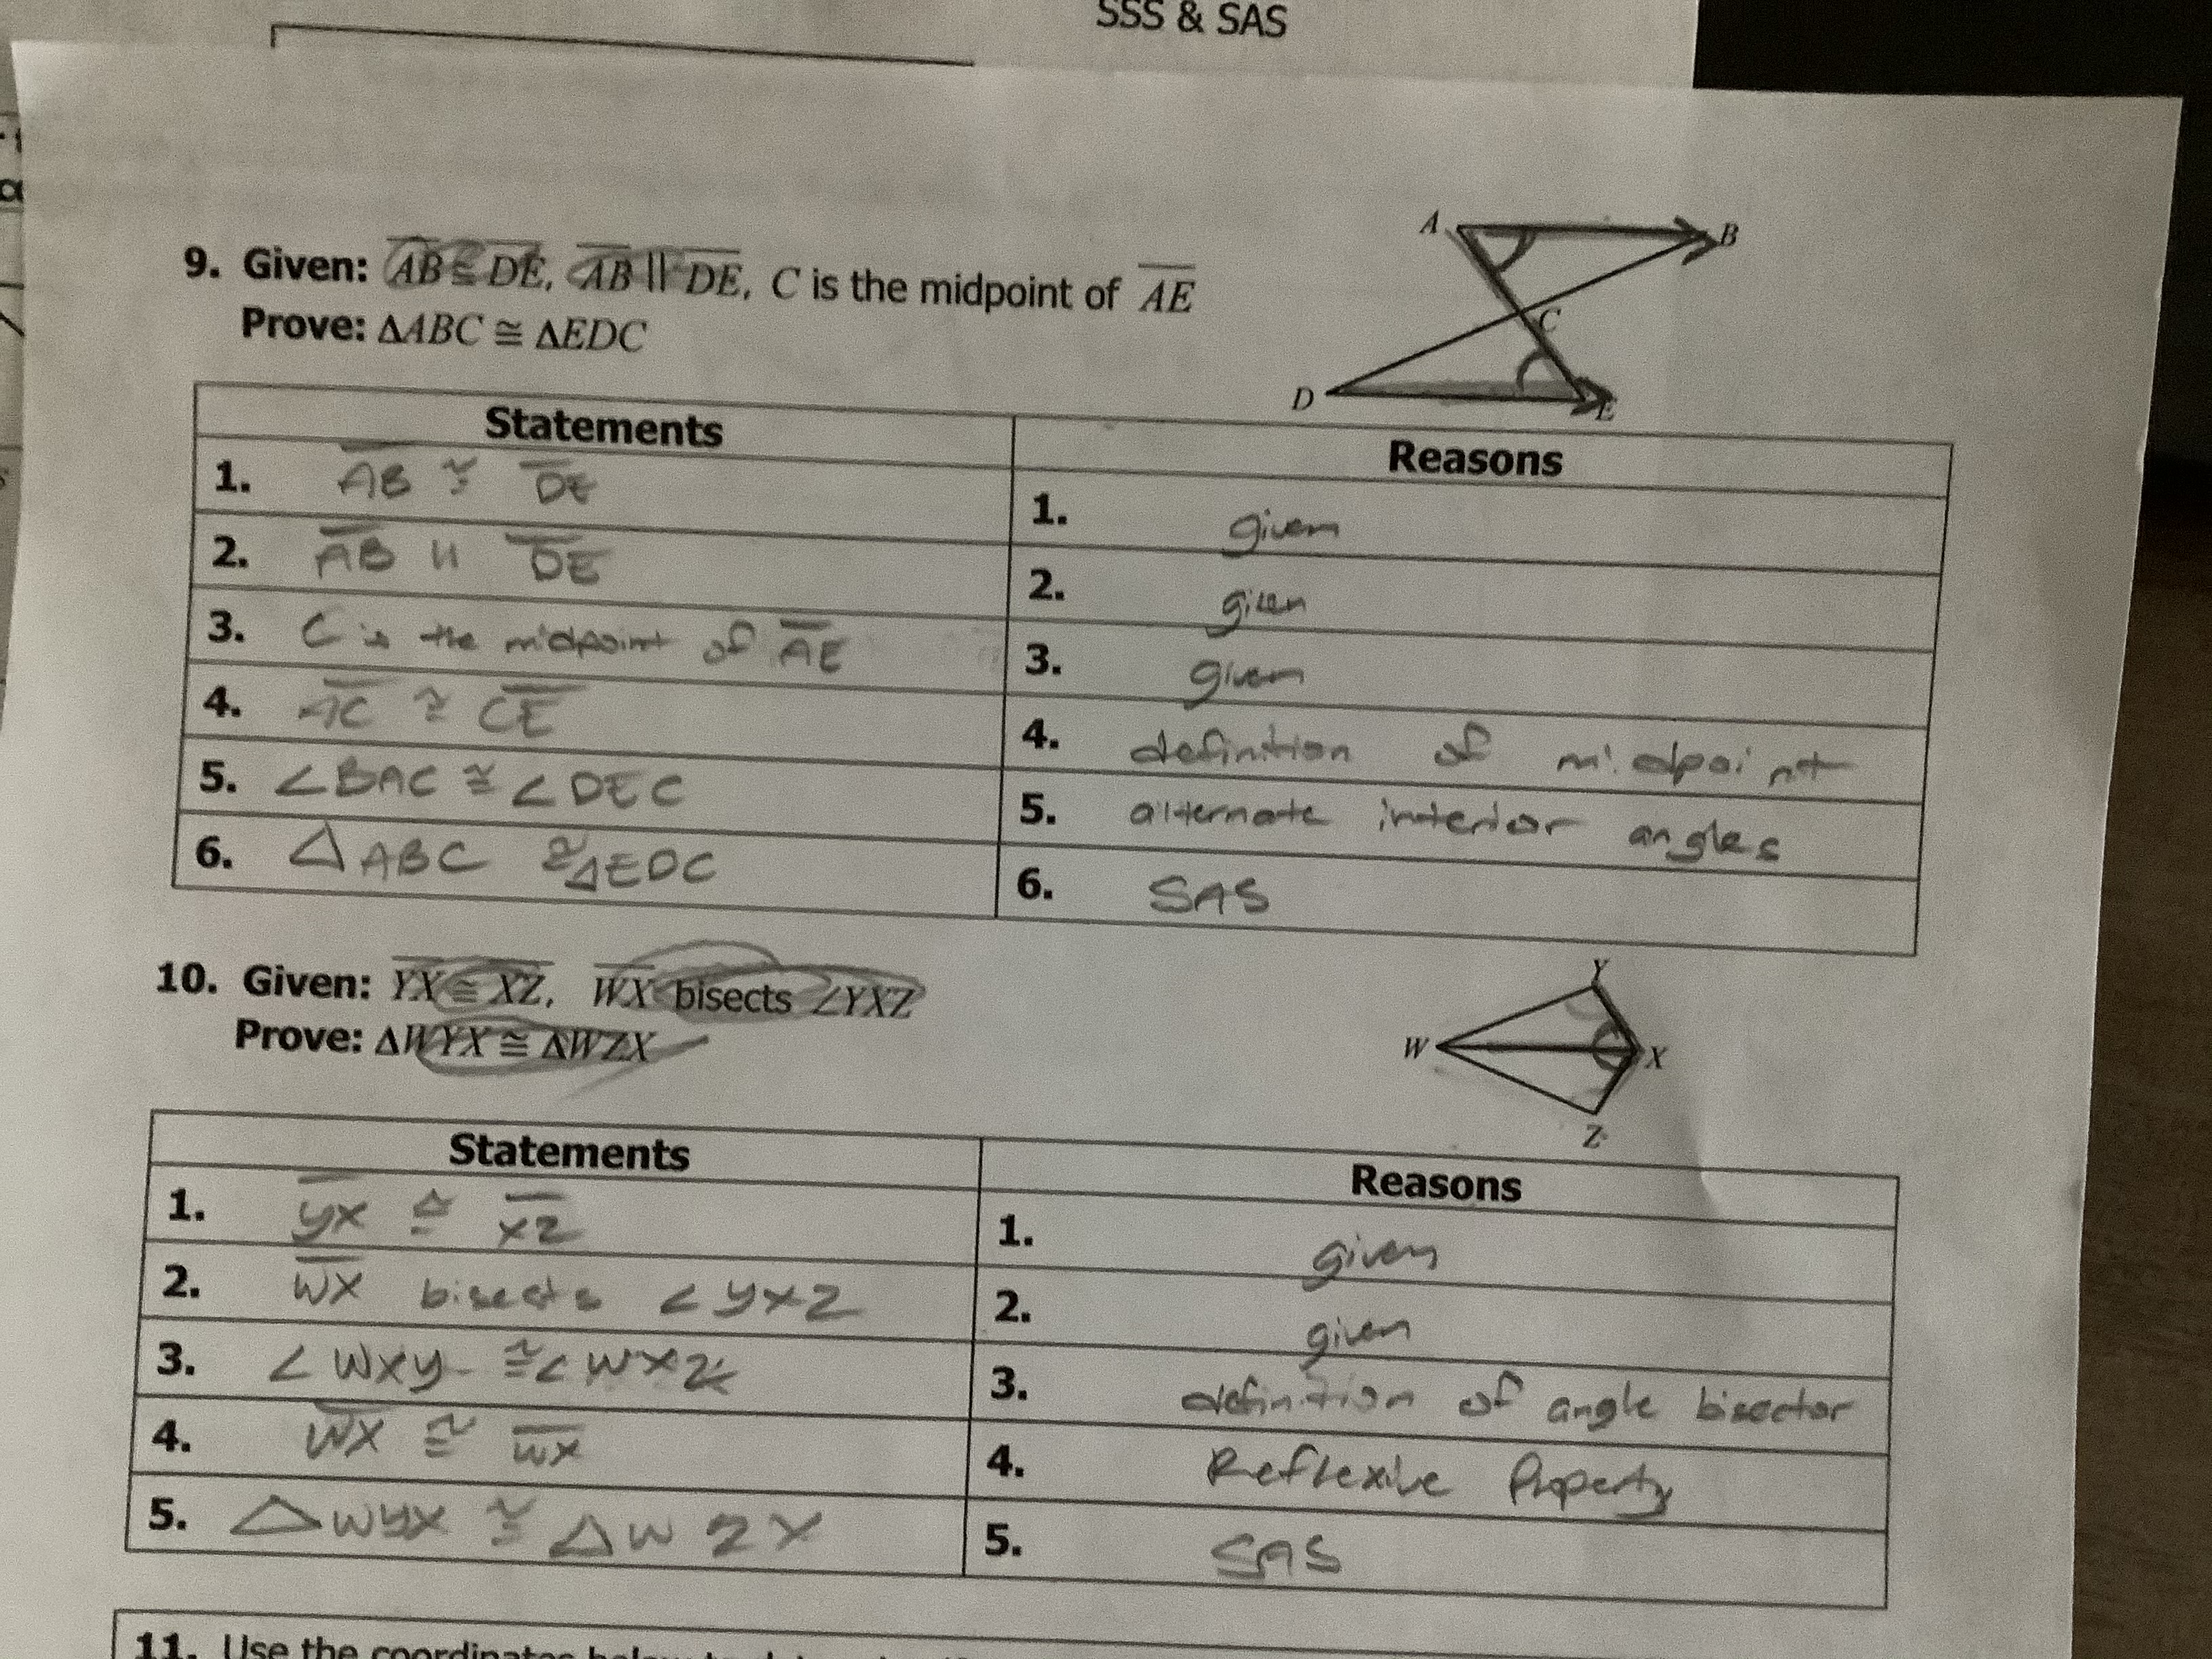 SSS & SAS
9. Given: AB ≅ DE, AB || DE, C is the midpoint of AE
Prove: ΔABC ≅ ΔEDC
A
B
C
D
E
Statements
Reasons
1. AB ≅ DE
1. given
2. AB || DE
2. given
3. C is the midpoint of AE
3. given
4. AC ≅ CE
4. definition of midpoint
5. ∠BAC ≅ ∠DEC
5. alternate interior angles
6. ΔABC ≅ ΔEDC
6. SAS
10. Given: YX ≅ XZ, WX bisects ∠YXZ
Prove: ΔWYX ≅ ΔWZX
Y
W
X
Z
Statements
Reasons
1. YX ≅ XZ
1. given
2. WX bisects ∠YXZ
2. given
3. ∠WXY ≅ ∠WXZ
3. definition of angle bisector
4. WX ≅ WX
4. Reflexive Property
5. ΔWYX ≅ ΔWZX
5. SAS
11. Use the coordinates below to